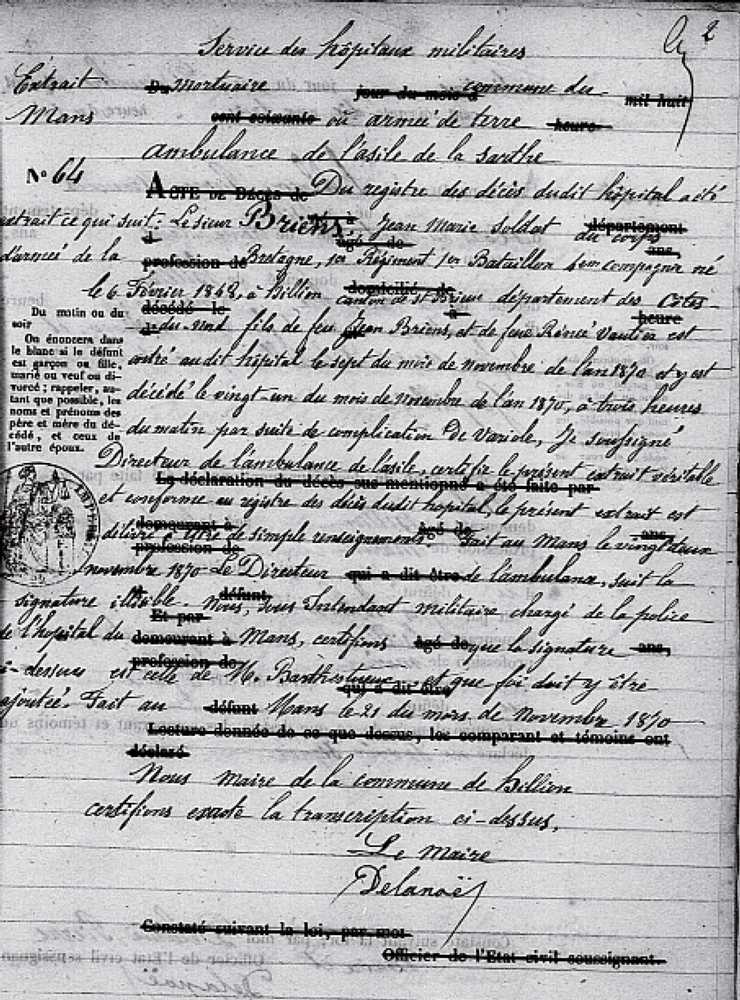 2
Service des hôpitaux militaires
Extrait Du Mortuaire jour du mois d commune du mil huit
Mans cent soixante ou armée de terre heure
ambulance de l'asile de la sarthe
N° 64
ACTE DE DÉCÈS de Du registre des décès dudit hôpital a été
extrait ce qui suit: Le sieur Briens, Jean Marie soldat département du corps
d'armée de la âgé de profession de Bretagne, 1er Régiment 1er Bataillon 6em compagnie né ans,
le 6 Février 1848, à hillion domicilié de canton de St Brieuc département des Côtes-
décédé le du-Nord fils de feu Jean Briens, et de feue Renée Vautier est heure
Du matin ou du
soir
On énoncera dans
le blanc si le défunt
est garçon ou fille,
marié ou veuf ou di-
vorcé; rappeler, au-
tant que possible, les
noms et prénoms des
père et mère du dé-
cédé, et ceux de
l'autre époux.
entré audit hôpital le sept du mois de novembre de l'an 1870 et y est
décédé le vingt-un du mois de Novembre de l'an 1870, à trois heures
du matin par suite de complication de Variole, Je soussigné
Directeur de l'ambulance de l'asile, certifie le présent extrait véritable
La déclaration du décès sus-mentionné a été faite par
et conforme au registre des décès dudit hôpital, le présent extrait est
demeurant à âgé de ans,
délivré à titre de simple renseignements. Fait au Mans le vingt deux
profession de
novembre 1870 Le Directeur qui a dit être de l'ambulance, suit la
défunt
signature illisible. Nous, sous Intendant militaire chargé de la police
Et par
de l'hopital du demeurant à Mans, certifions âgé de que la signature ans,
profession de
ci-dessus est celle de M. qui a dit être et que foi doit y être
ajoutée. Fait au défunt Mans le 21 du mois de Novembre 1870
Lecture donnée de ce que dessus, les comparant et témoins ont
déclaré
Nous maire de la commune de hillion
certifions exacte la transcription ci-dessus,
Le Maire
Delanoë
Constaté suivant la loi, par moi
Officier de l'État civil soussignant.